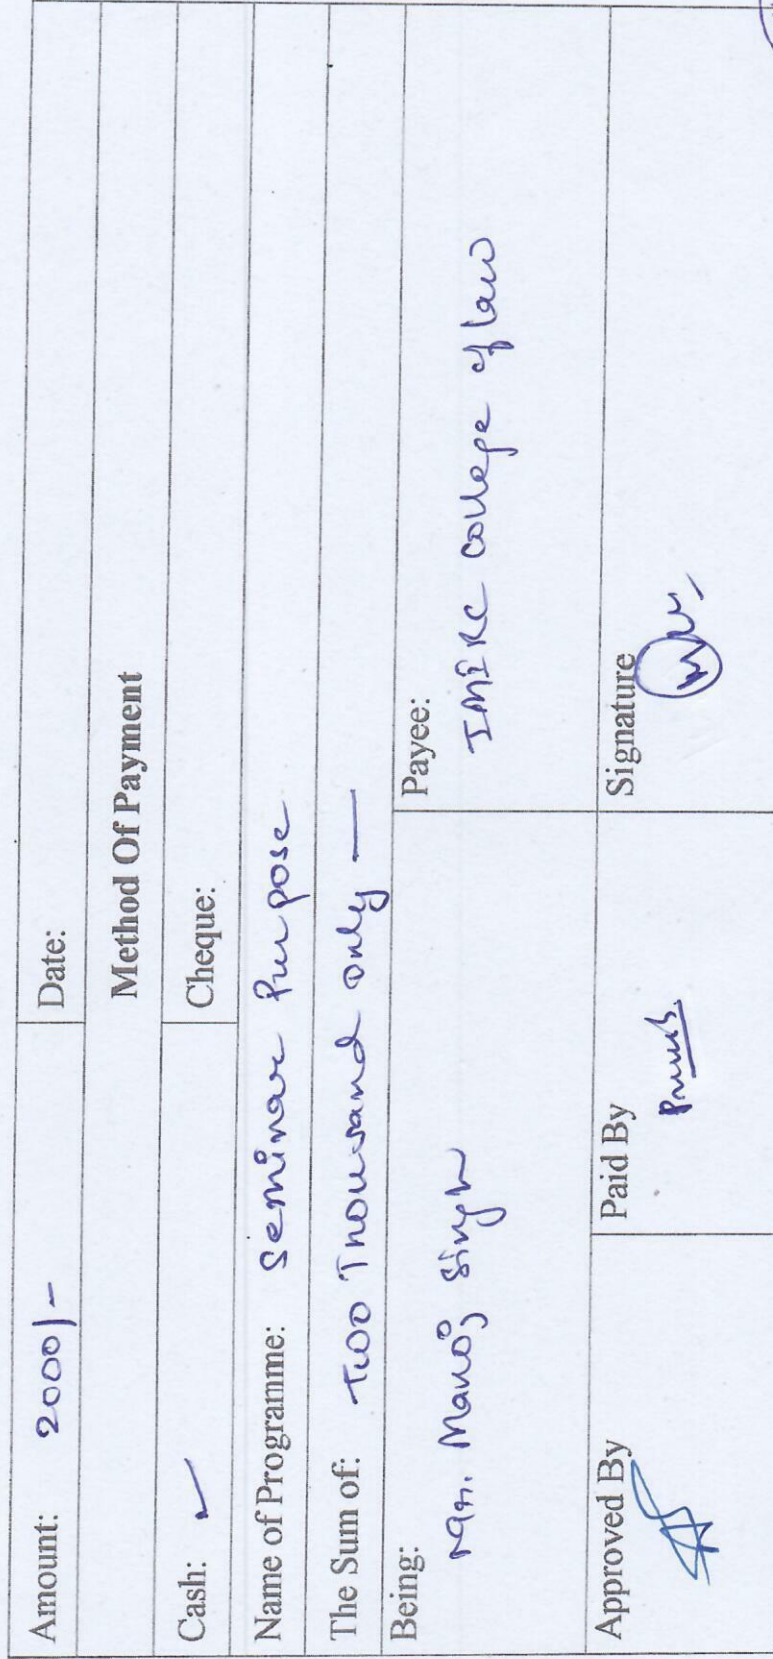 Amount: 2000/- Date:
Method Of Payment
Cash: ✓ Cheque:
Name of Programme: Seminar Purpose
The Sum of: Two Thousand only —
Being: Payee:
Mr. Manoj Singh College of law
Approved By Paid By Signature